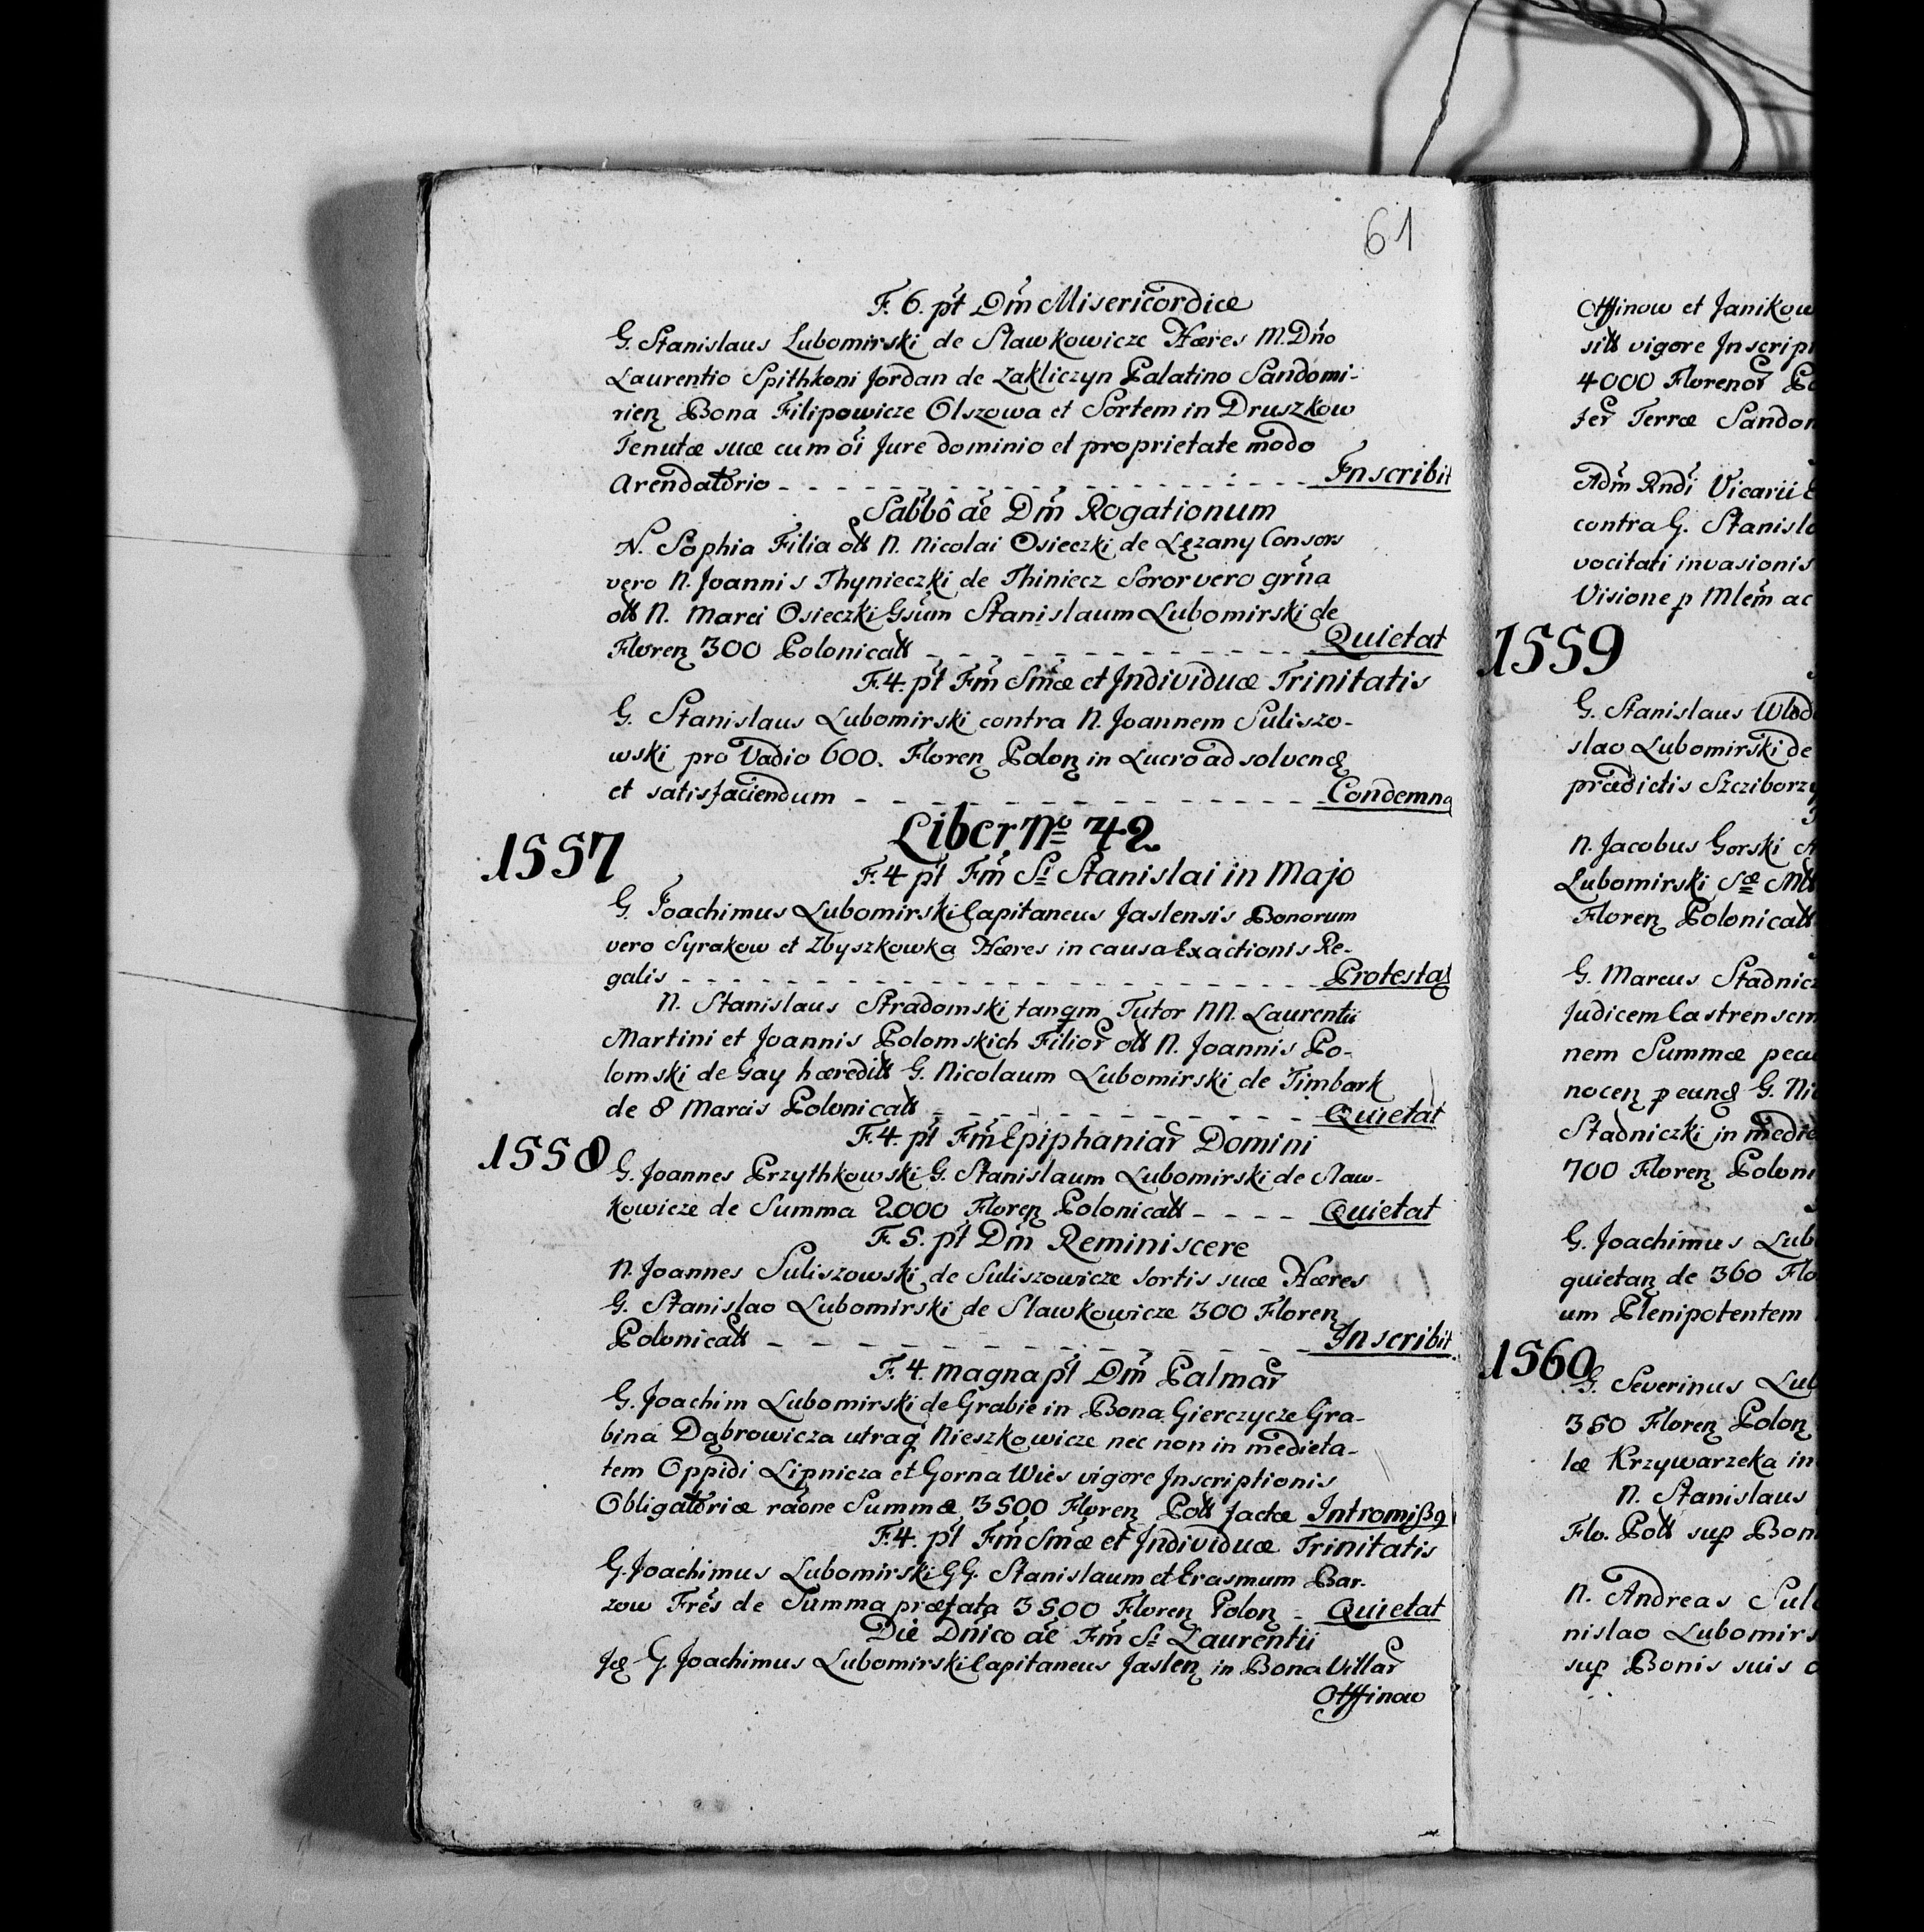 61
F. 6. pt Dm Misericordiæ
G. Stanislaus Lubomirski de Slawkowicze Hæres M. Dno
Laurentio Spithkoni Jordan de Zakliczyn Palatino Sandomi-
rien Bona Filipowicze Olszowa et Sortem in Druszkow
Tenutæ suæ cum oi Jure dominio et proprietate modo
Arendatorio - - - Inscribit
Sabbô ae Dm Rogationum
N. Sophia Filia olt N. Nicolai Osieczki de Lęzany Consors
vero N. Joannis Thynieczki de Thiniecz Soror vero grna
olt N. Marci Osieczki Gsum Stanislaum Lubomirski de
Floren 300 Polonicalt - - - Quietat
F. 4. pt Fm Smæ et Individuæ Trinitatis
G. Stanislaus Lubomirski contra N. Joannem Suliszo-
wski pro Vadio 600. Floren Polon in Lucro ad solvend
et satisfaciendum - - - Condemna
1557
Liber No 42.
F. 4 pt Fm Si Stanislai in Majo
G. Joachimus Lubomirski Capitaneus Jaslensis Bonorum
vero Syrakow et Zbyszkowka Hæres in causa Exactionis Re-
galis - - - Protestat
N. Stanislaus Stradomski tanqm Tutor NN. Laurentii
Martini et Joannis Polomskich Filior olt N. Joannis Po-
lomski de Gay hæredilt G. Nicolaum Lubomirski de Timbark
de 8 Marcis Polonicalt - - - Quietat
1558
F. 4. pt Fm Epiphaniar Domini
G. Joannes Przythkowski G. Stanislaum Lubomirski de Slaw-
kowicze de Summa 2000 Floren Polonicalt - - - - Quietat
F. 5. pt Dm Reminiscere
N. Joannes Suliszowski de Suliszowicze sortis suæ Hæres
G. Stanislao Lubomirski de Slawkowicze 300 Floren
Polonicalt - - - Inscribit
F. 4. magna pt Dm Palmar
G. Joachim Lubomirski de Grabie in Bona Gierczycze Gra-
bina Dąbrowicza utraq Nieszkowicze nec non in medieta-
tem Oppidi Lipnicza et Gorna Wies vigore Inscriptionis
Obligatoriæ raone Summæ 3500 Floren Polt factæ Intromiß9
F. 4. pt Fm Smæ et Individuæ Trinitatis
G. Joachimus Lubomirski GG. Stanislaum et Erasmum Bar-
zow Fres de Summa præfata 3500 Floren Polon - Quietat
Die Dnico ae Fm Si Laurentii
Jd G. Joachimus Lubomirski Capitaneus Jaslen in Bona Villar
Otffinow
Otffinow et Janikow
silt vigore Inscrip
4000 Florenor Po
fer Terræ Sandom
Adm Rndi Vicarii
contra G. Stanisl
vocitati invasionis
Visione p Mlem ac
1559
G. Stanislaus Wlod
slao Lubomirski de
prædictis Szcziborzy
N. Jacobus Gorski
Lubomirski
Floren Polonicalt
G. Marcus Stadnicz
Judicem Castrensem
nem Summæ pecu
nocen p eund G. Ni
Stadniczki in medie
700 Floren Poloni
G. Joachimus Lub
quietan de 360 Flo
um Plenipotentem
1560
G. Severinus Lub
350 Floren Polon
læ Krzywarzeka in
N. Stanislaus
Flo. Polt sup Bon
N. Andreas Sul
nislao Lubomirs
sup Bonis suis